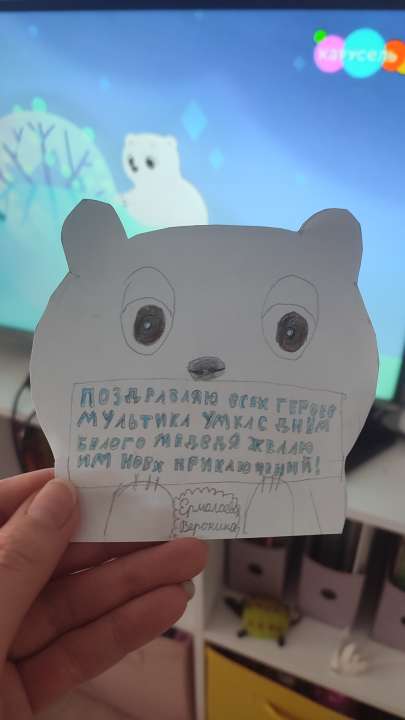 карусель
ПОЗДРАВЛЯЮ ВСЕХ ГЕРОЕВ
МУЛЬТИКА УМКА С ДНЁМ
БЕЛОГО МЕДЕДЯ ЖЕЛАЮ
ИМ НОВХ ПРИКЛЮЧЕНИЙ!
Ермолаева
Вероника